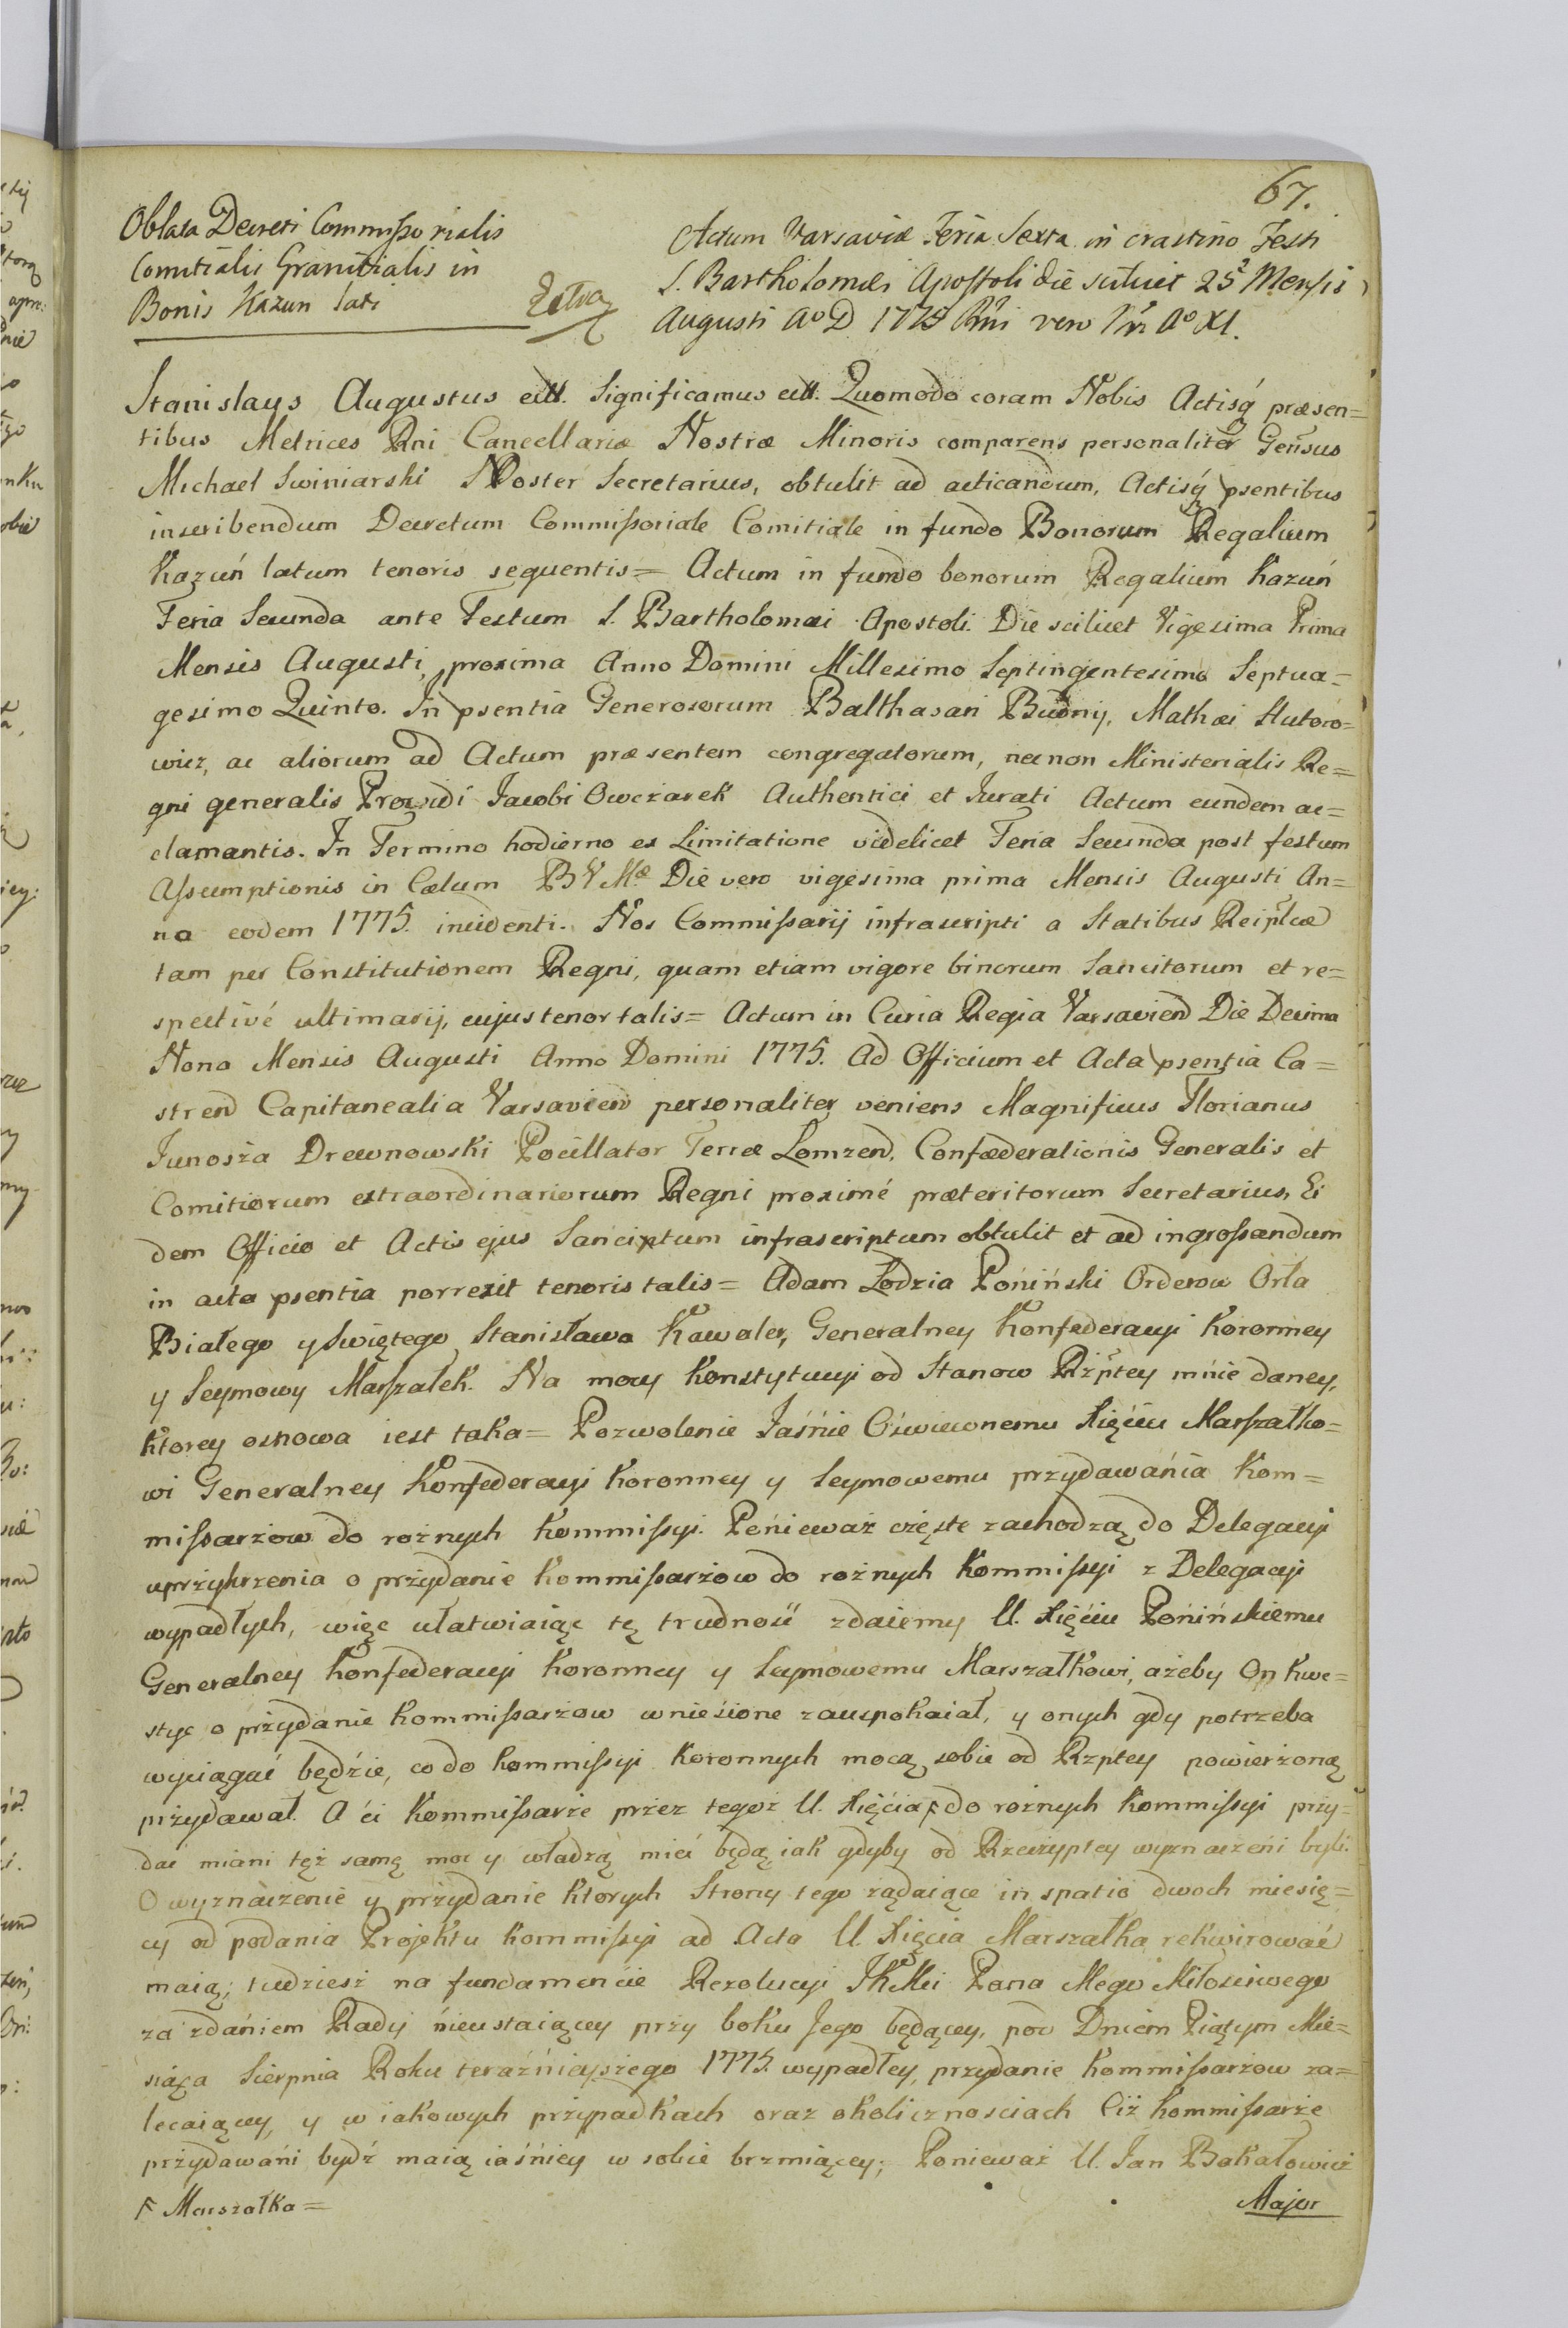 67.
Oblata Decreti Commißorialis
Comitialis Granitialis in
Bonis Kazun lati
Actum Varsaviæ Feria Sexta in crastino Festi
S. Bartholomæi Apostoli die scilicet 25ª Mensis
Augusti Aº D 1775 Rñi vero Ñri Aº XI.
Stanislaus Augustus ettt. Significamus ettt. Quomodo coram Nobis Actisq́ præsen=
tibus Metrices Rni Cancellariæ Nostræ Minoris comparens personaliter Geñsus
Michael Swiniarski Noster Secretarius, obtulit ad acticandum, Actisq́ psentibus
inscribendum Decretum Commißoriale Comitiale in fundo Bonorum Regalium
Kazuń latum tenoris sequentis= Actum in fundo bonorum Regalium Kazuń
Feria Secunda ante Festum S. Bartholomæi Apostoli. Die scilicet Vigesima Prima
Mensis Augusti, proxima Anno Domini Millesimo Septingentesimo Septua=
gesimo Quinto. In psentia Generosorum Balthasari Budny, Mathæi Hutoro=
wicz, ac aliorum ad Actum præsentem congregatorum, nec non Ministerialis Re=
gni generalis Providi Jacobi Owczarek Authentici et Jurati Actum eundem ac=
clamantis. In Termino hodierno ex Limitatione videlicet Feria Secunda post festum
Aßumptionis in Cælum B V Mæ Die vero vigesima prima Mensis Augusti An=
no eodem 1775. incidenti. Nos Commißarij infrascripti a Statibus Reiplcæ
tam per Constitutionem Regni, quam etiam vigore binorum Sancitorum et re=
spectivé ultimarij, cujus tenor talis= Actum in Curia Regia Varsavien̄ Die Decima
Nona Mensis Augusti Anno Domini 1775. Ad Officium et Acta psentia Ca=
stren̄ Capitanealia Varsavien̄ personaliter veniens Magnificus Florianus
Junosza Drewnowski Pocillator Terræ Lomzen̄, Confæderationis Generalis et
Comitiorum extraordinariorum Regni proximé præteritorum Secretarius, Ei
dem Officio et Actis ejus Sancitum infrascriptum obtulit et ad ingroßandum
in acta psentia porrexit tenoris talis= Adam Łodzia Poniński Orderow Orła
Białego y Swiętego Stanisława Kawaler, Generalney Konfederacyi Koronney
y Seymowy Marszałek. Na mocy Konstytucyi od Stanow Rżptey mnie daney,
ktorey osnowa iest taka= Pozwolenie Jaśnie Oświeconemu Xięćiu Marszałko=
wi Generalney Konfederacyi Koronney y Seymowemu przydawánia Kom=
mißarzow do rożnych Kommißyi. Ponieważ częste zachodzą do Delegacyi
uprzykrzenia o przydanie Kommißarzow do rożnych Kommißyi z Delegacyi
wypadłych, więc ułatwiaiąc tę trudność zdaiemy U. Xięćiu Ponińskiemu
Generalney Konfederacyi Koronney y Seymowemu Marszałkowi, ażeby On kwe=
stye o przydanie Kommißarzow wnieśione zauspokaiał, y onych gdy potrzeba
wyciągać będzie, co do Kommißyi Koronnych mocą sobie od Rzptey powierzoną
przydawał. A ći Kommißarze przez tegoż U. Xięćia ꜰ do rożnych Kommißyi przy=
dać miani tęż samę moc y władzą mieć będą iak gdyby od Rzeczyptey wyznaczeni byli.
O wyznaczenie y przydanie ktorych Strony tego żądaiące in spatio dwoch miesię=
cy od podania Projektu Kommißyi ad Acta U. Xięcia Marszałka rekwirować
maią; tudziesz na fundamencie Rezolucyi JKMci Pana Mego Miłosciwego
za zdaniem Rady nieustaiącey przy boku Jego będącey, pod Dniem Piątym Mie=
siąca Sierpnia Roku teraźnieyszego 1775. wypadłey, przydanie Kommißarzow za=
lecaiącey, y w iakowych przypadkach oraz okolicznosciach Ciż Kommißarze
przydawáni bydź maią iaśniey w sobie brzmiącey; Ponieważ U. Jan Bakałowicz
ꜰ Marszałka=
Major